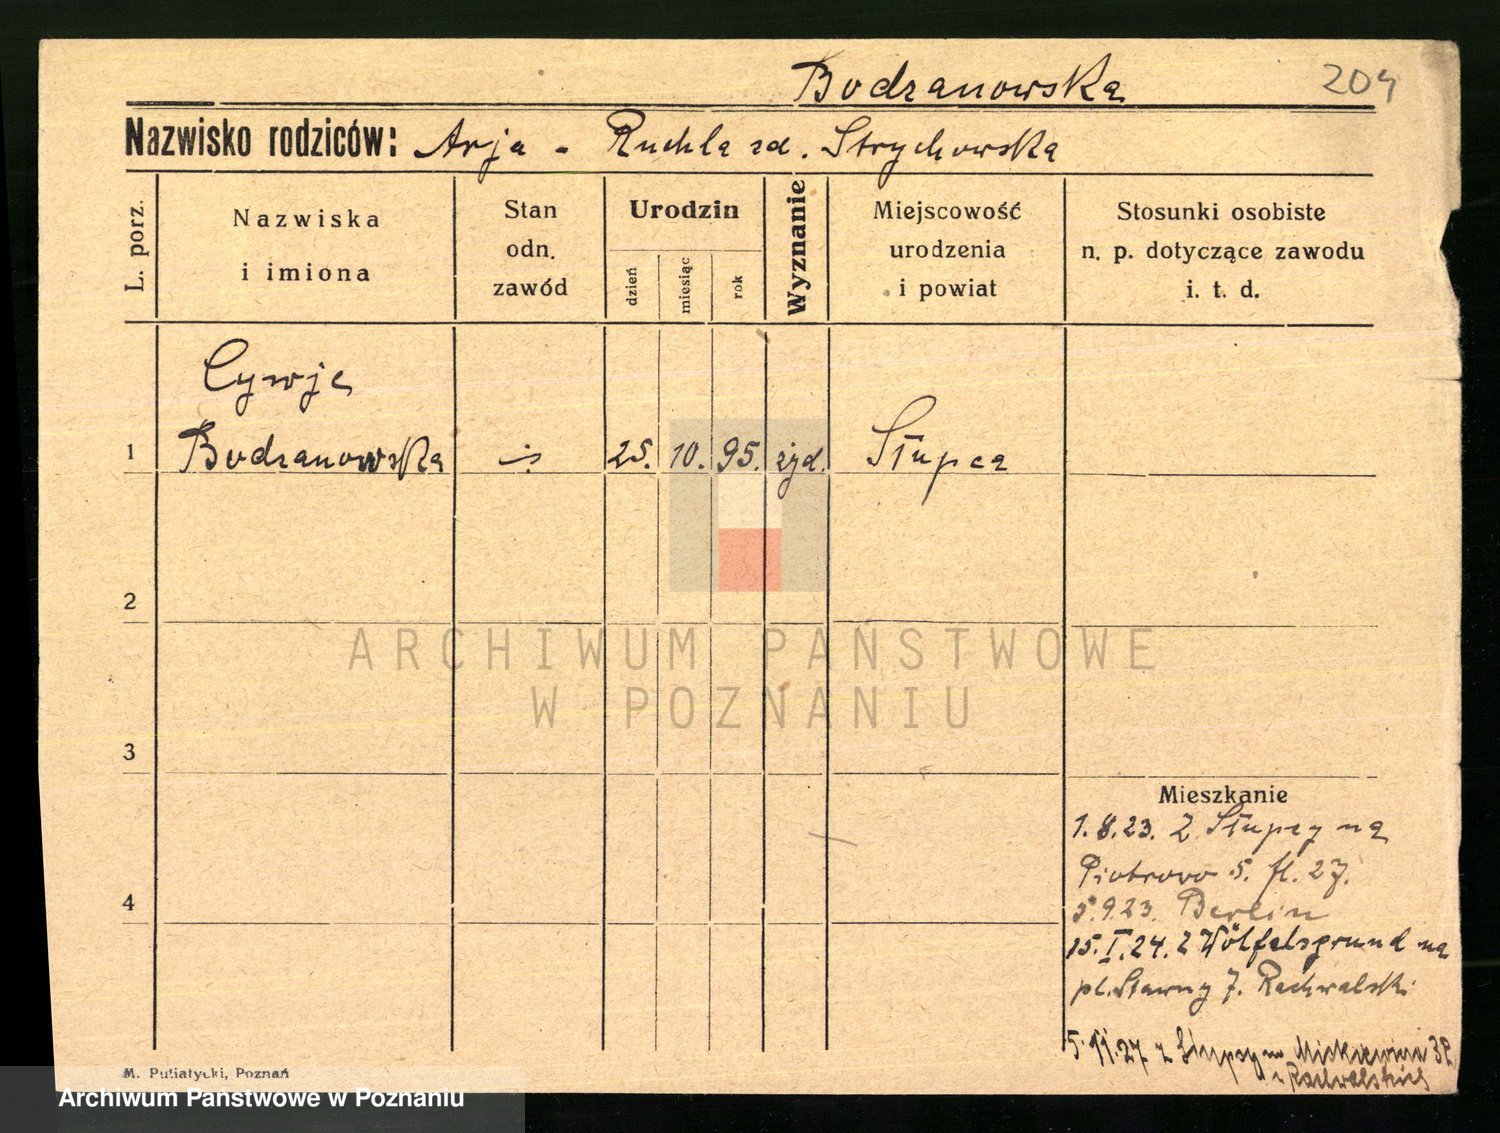 Bodzanowska 204
Nazwisko rodziców: Arja - Ruchla zd. Strychowska
L. porz.
Nazwiska
i imiona
Stan
odn.
zawód
Urodzin
dzień
miesiąc
rok
Wyznanie
Miejscowość
urodzenia
i powiat
Stosunki osobiste
n. p. dotyczące zawodu
i. t. d.
Cywja
1 Bodzanowska 25. 10. 95. żyd. Słupca
2
ARCHIWUM PAŃSTWOWE
W POZNANIU
3
Mieszkanie
1.8.23. Z Słupcy na
Piotrowo 5. fl. 27.
4
5.9.23. Berlin
15.I.24. z Wölfelsgrund na
pl. Sławny 7. Rachwalski
5.11.27 z Słupcy na 32
u Rachwalskich
M. Putiatycki, Poznań
Archiwum Państwowe w Poznaniu